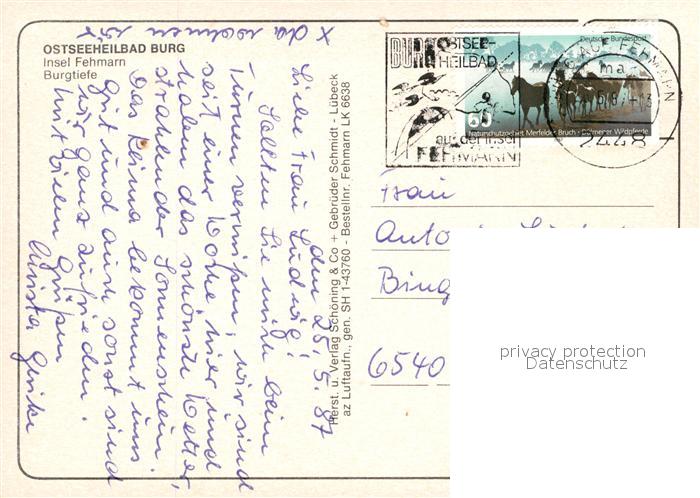 x da wohnen wir
OSTSEEHEILBAD BURG
Insel Fehmarn
Burgtiefe
den 25.5.87
Liebe Frau Ludwig!
Sollten Sie mich beim
Turnen vermissen, wir sind
seit einer Woche hier und
haben das schönste Wetter,
strahlender Sonnenschein.
Das Klima bekommt uns
gut und auch sonst sind
wir ganz zufrieden.
Mit vielen Grüßen
Christa
Herst. u. Verlag Schöning & Co + Gebrüder Schmidt - Lübeck
az Luftaufn., gen. SH 1-43760 - Bestellnr. Fehmarn LK 6638
BURG OSTSEE-
HEILBAD
auf der Insel
FEHMARN
Deutsche Bundespost
60
Naturschutzgebiet Merfelder Bruch · Dülmener Wildpferde
BURG AUF FEHMARN
ma
2448
Frau
Anto
Bing
6540
privacy protection
Datenschutz